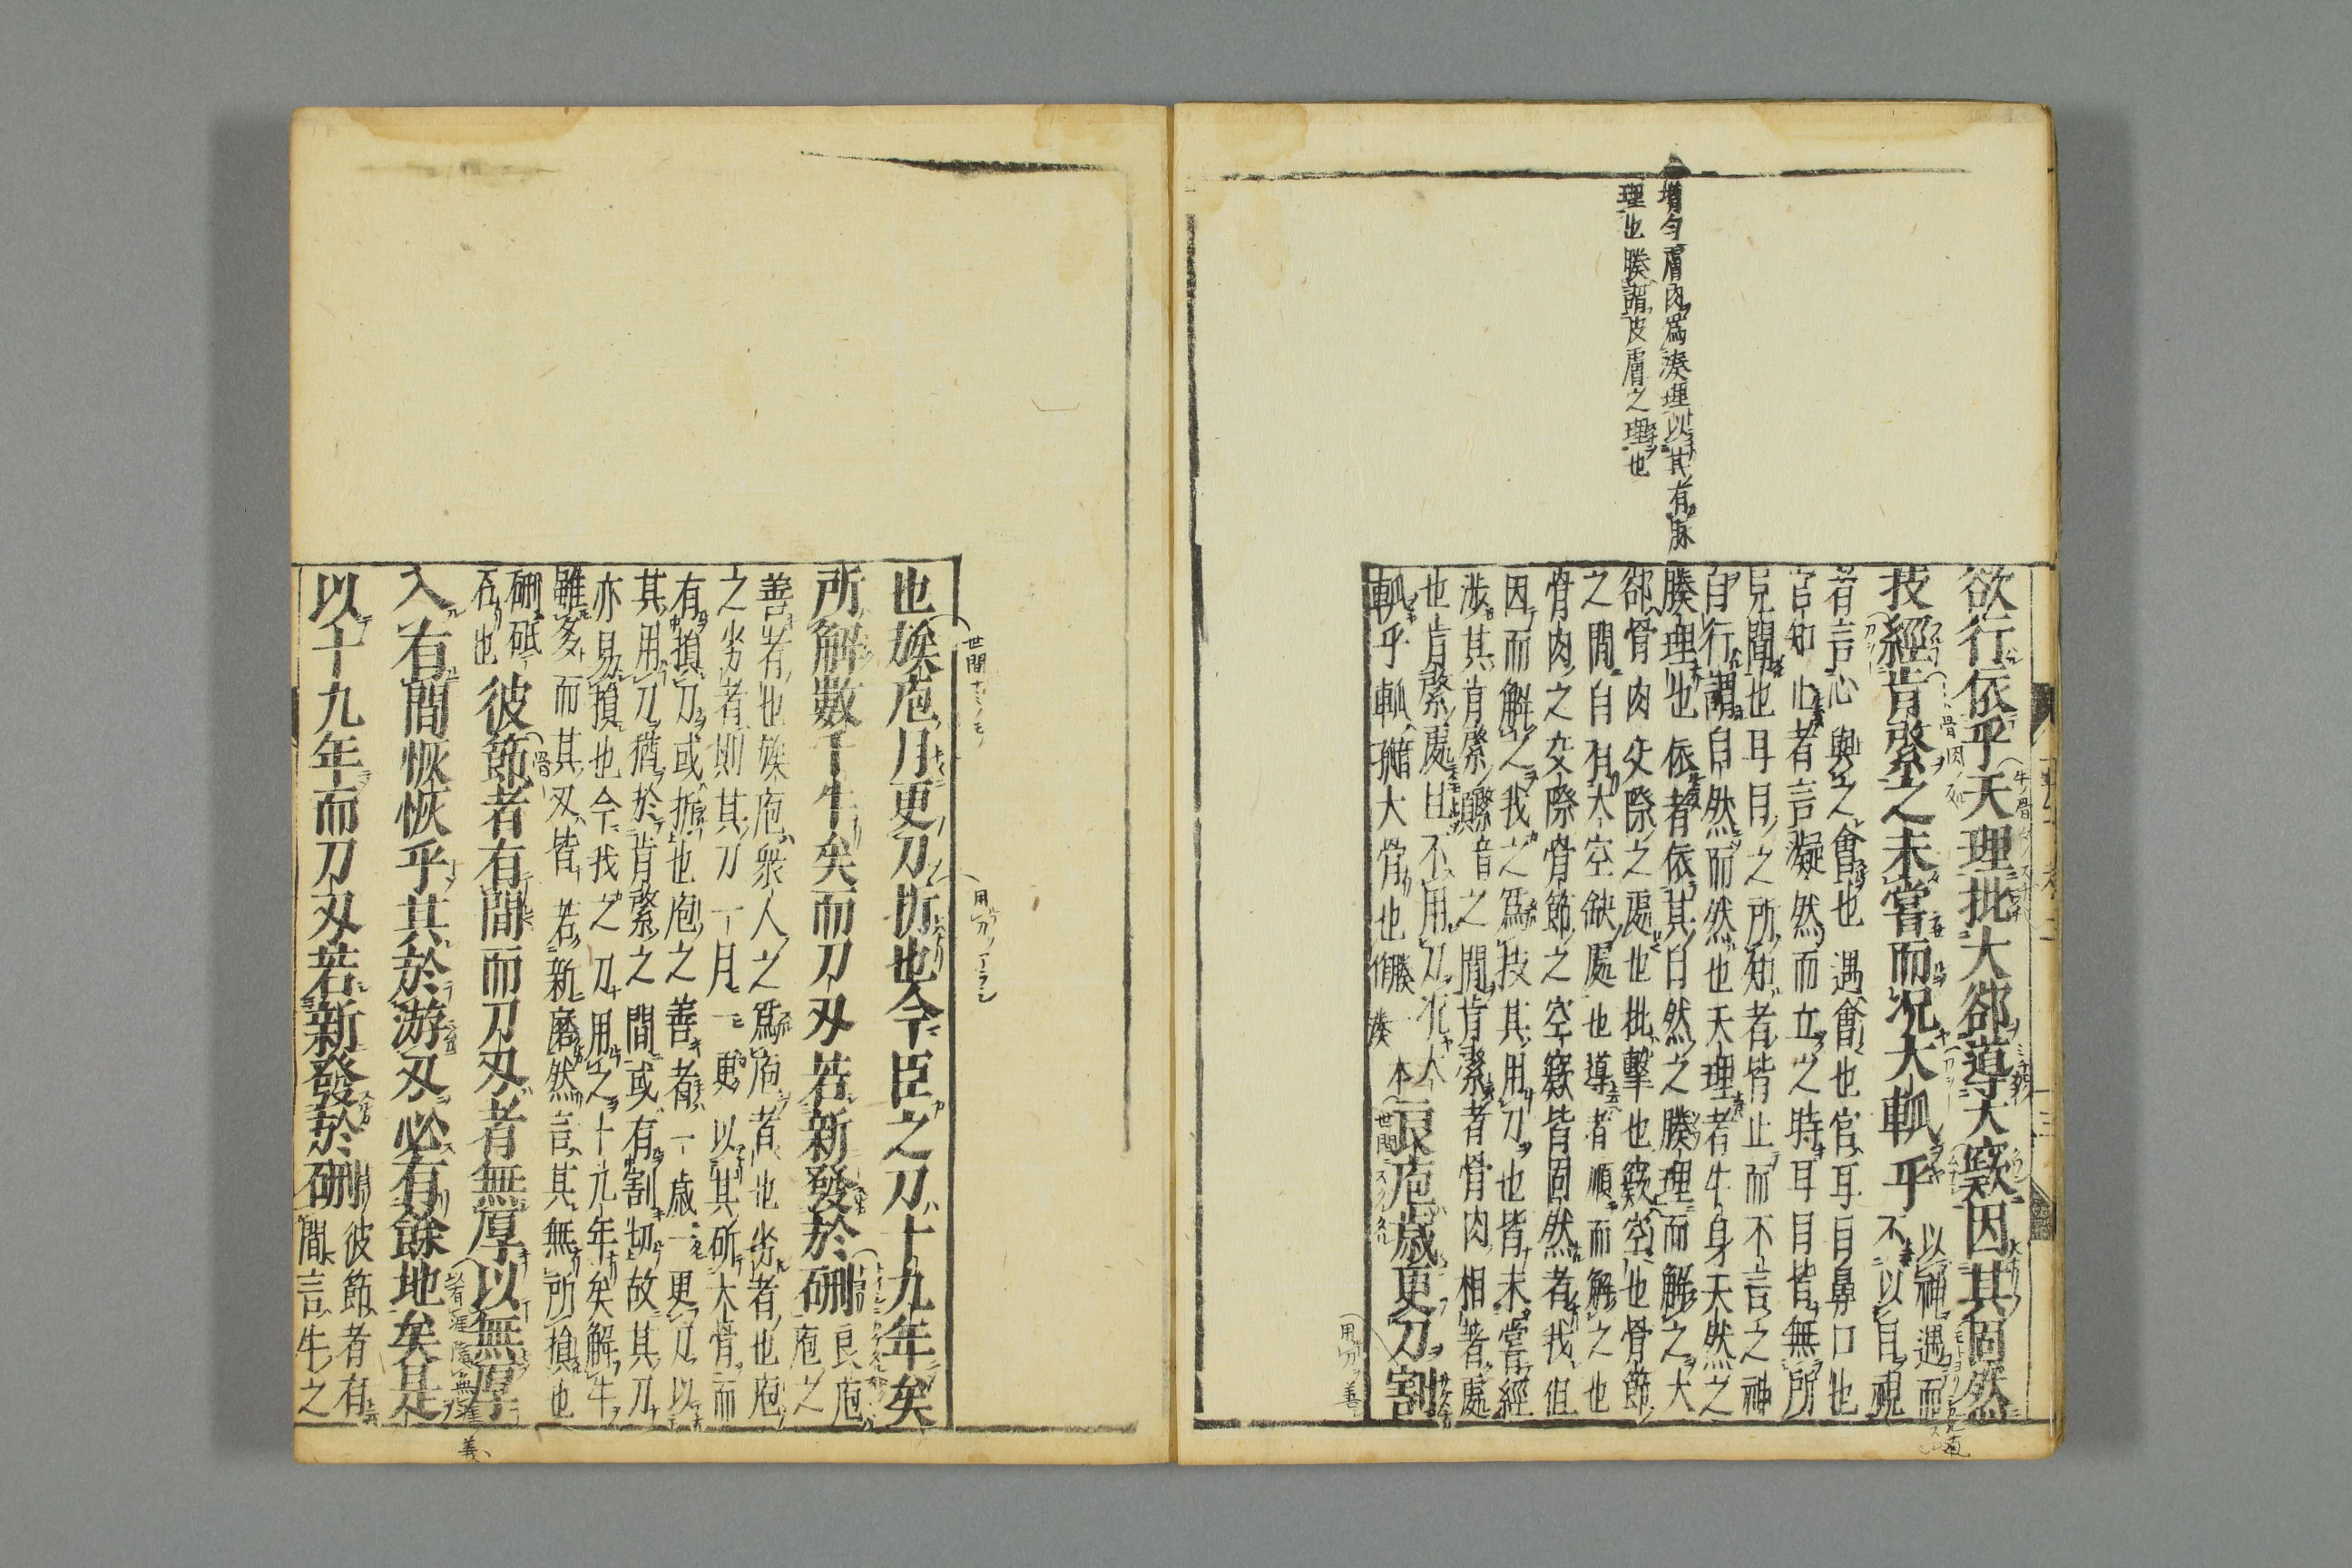 增匀膚肉爲湊理以其有脉
理也腠謂皮膚之理也
欲行依乎天理批大郤導大窾因其固然
技經肯綮之未嘗而况大軱乎以神遇而
不以目視
者言心與之會也遇會也官耳目鼻口也
官知止者言凝然而立之時耳目皆無所
見聞也耳目之所知者皆止而不言之神
自行謂自然而然也天理者牛身天然之
腠理也依者依其自然之腠理而解之大
郤骨肉交際之處也批擊也窾空也骨節
之間自有大空缺處也導者順而解之也
骨肉之交際骨節之空窾皆固然者我但
因而解之我之爲技其用刀也皆未嘗經
涉其肯綮綮音之間肯綮者骨肉相著處
也肯綮處且不用刀况大
軱乎軱大骨也腠作湊本良庖歲更刀割
也族庖月更刀折也今臣之刀十九年矣
所解數千牛矣而刀刄若新發於硎良庖
庖之
善者也族庖衆人之爲庖者也劣者也庖
之劣者則其刀一月一更以其斫大骨而
有損刀或折也庖之善者一歲一更刀以
其用刀猶於肯綮之間或有割切故其刀
亦易損也今我之刀用之十九年矣解牛
雖多而其刄皆若新磨然言其無所損也
硎砥
石也彼節者有間而刀刄者無厚以無厚
入有間恢恢乎其於游刄必有餘地矣是
以十九年而刀刄若新發於硎彼節者有
間言牛之